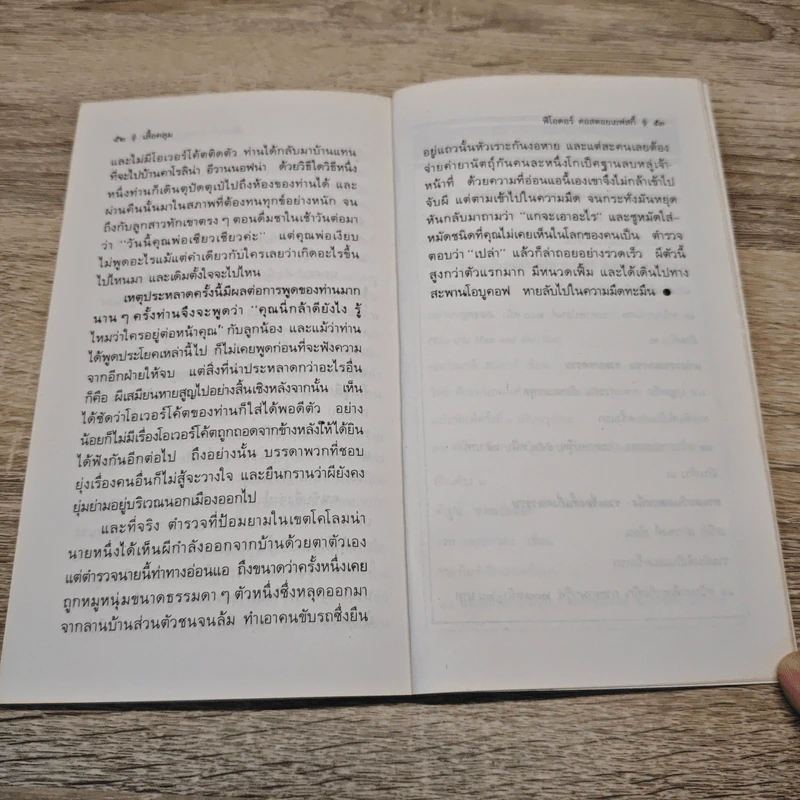 ๕๒ เสื้อคลุม
และไม่มีโอเวอร์โค้ตติดตัว ท่านได้กลับมาบ้านแทน
ที่จะไปบ้านคาโรลิน่า อีวานนอฟน่า ด้วยวิธีใดวิธีหนึ่ง
หนึ่งท่านก็เดินตุปัดตุเป๋ไปถึงห้องของท่านได้ และ
ผ่านคืนนั้นมาในสภาพที่ต้องทนทุกข์อย่างหนัก จน
ถึงกับลูกสาวทักเขาตรง ๆ ตอนดื่มชาในเช้าวันต่อมา
ว่า "วันนี้คุณพ่อเซียวเซียวค่ะ" แต่คุณพ่อเงียบ
ไม่พูดอะไรแม้แต่คำเดียวกับใครเลยว่าเกิดอะไรขึ้น
ไปไหนมา และเดิมตั้งใจจะไปไหน
เหตุประหลาดครั้งนี้มีผลต่อการพูดของท่านมาก
นาน ๆ ครั้งท่านจึงจะพูดว่า "คุณนี่กล้าดียังไง รู้
ไหมว่าใครอยู่ต่อหน้าคุณ" กับลูกน้อง และแม้ว่าท่าน
ได้พูดประโยคเหล่านี้ไป ก็ไม่เคยพูดก่อนที่จะฟังความ
จากอีกฝ่ายให้จบ แต่สิ่งที่น่าประหลาดกว่าอะไรอื่น
ก็คือ ผีเสมียนหายสูญไปอย่างสิ้นเชิงหลังจากนั้น เห็น
ได้ชัดว่าโอเวอร์โค้ตของท่านก็ใส่ได้พอดีตัว อย่าง
น้อยก็ไม่มีเรื่องโอเวอร์โค้ตถูกถอดจากข้างหลังให้ได้ยิน
ได้ฟังกันอีกต่อไป ถึงอย่างนั้น บรรดาพวกที่ชอบ
ยุ่งเรื่องคนอื่นก็ไม่สู้จะวางใจ และยืนกรานว่าผียังคง
ยุ่มย่ามอยู่บริเวณนอกเมืองออกไป
และที่จริง ตำรวจที่ป้อมยามในเขตโคโลมน่า
นายหนึ่งได้เห็นผีกำลังออกจากบ้านด้วยตาตัวเอง
แต่ตำรวจนายนี้ท่าทางอ่อนแอ ถึงขนาดว่าครั้งหนึ่งเคย
ถูกหมูหนุ่มขนาดธรรมดา ๆ ตัวหนึ่งซึ่งหลุดออกมา
จากลานบ้านส่วนตัวชนจนล้ม ทำเอาคนขับรถซึ่งยืน
ฟีโอดอร์ ดอสตอยเยฟสกี้ ๕๓
อยู่แถวนั้นหัวเราะกันงอหาย และแต่ละคนเลยต้อง
จ่ายค่ายานัตถุ์กันคนละหนึ่งโกเป็คฐานลบหลู่เจ้า-
หน้าที่ ด้วยความที่อ่อนแอนี้เองเขาจึงไม่กล้าเข้าไป
จับผี แต่ตามเข้าไปในความมืด จนกระทั่งมันหยุด
หันกลับมาถามว่า "แกจะเอาอะไร" และชูหมัดใส่-
หมัดชนิดที่คุณไม่เคยเห็นในโลกของคนเป็น ตำรวจ
ตอบว่า "เปล่า" แล้วก็ล่าถอยอย่างรวดเร็ว ผีตัวนี้
สูงกว่าตัวแรกมาก มีหนวดเฟิ้ม และได้เดินไปทาง
สะพานโอบูคอฟ หายลับไปในความมืดทะมึน ●